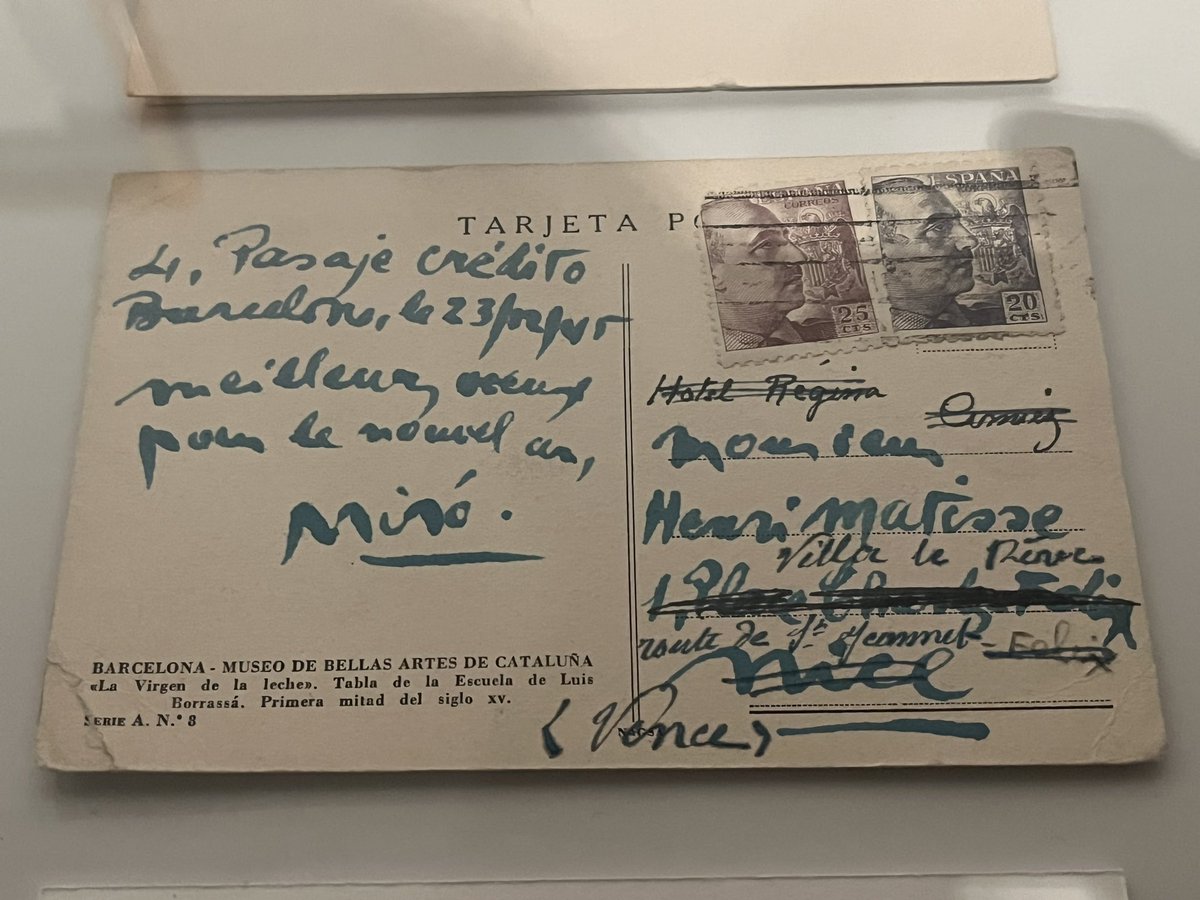 TARJETA PO
4, Pasaje Crédito
Barcelona, le 23/12/45
meilleurs voeux
pour le nouvel an,
Miró.
BARCELONA - MUSEO DE BELLAS ARTES DE CATALUÑA
«La Virgen de la leche». Tabla de la Escuela de Luis
Borrassá. Primera mitad del siglo XV.
SERIE A. N.º 8
CORREOS
25
CTS
ESPAÑA
20
CTS
Hotel Régina
Monsieur
Henri Matisse
Villa le Rêve
1 Place Charles Felix
route de St Jeannet
Felix
Nice
(Vence)